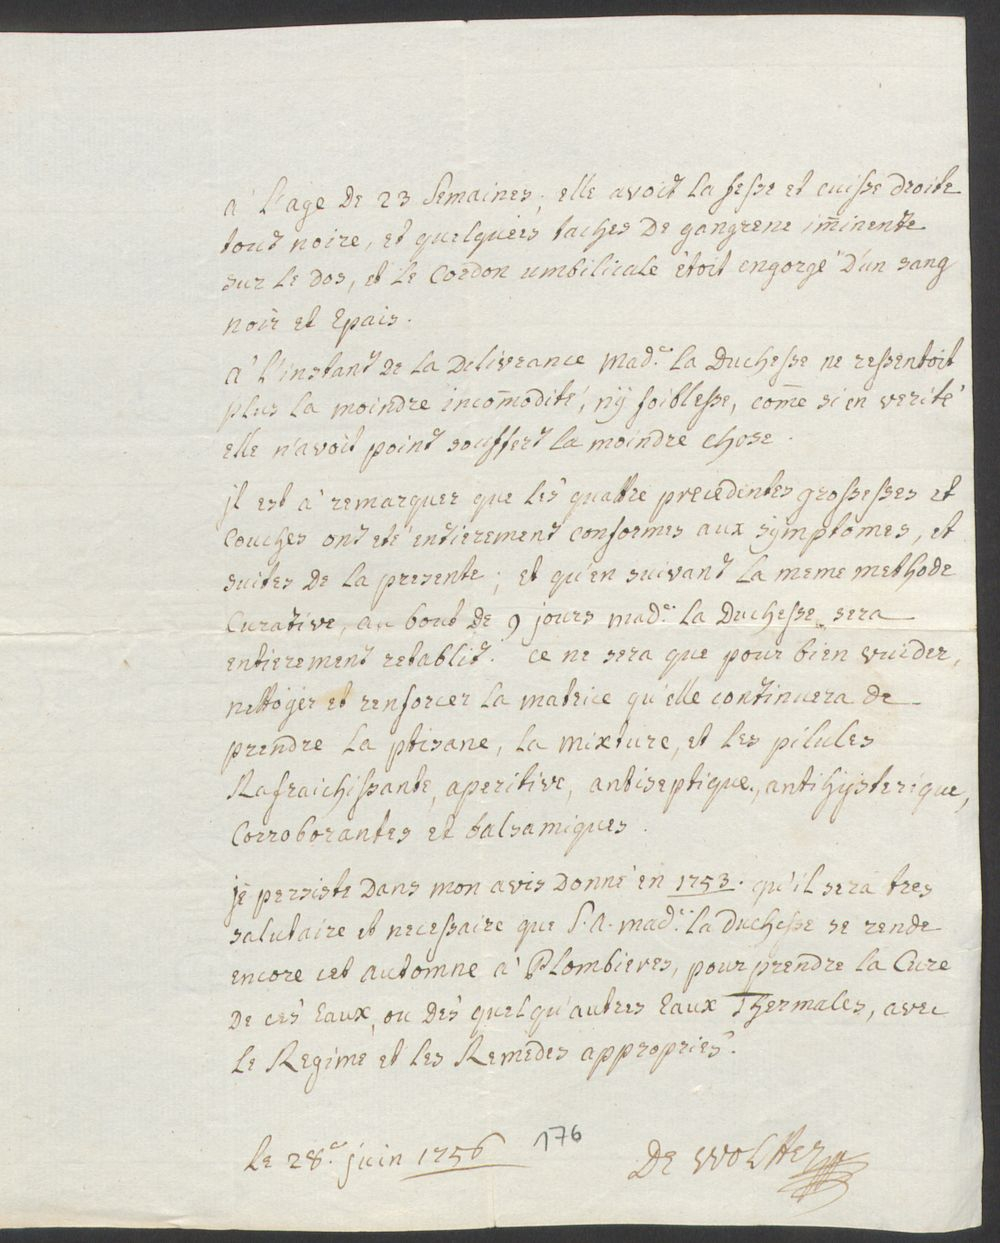 à L'age de 23 Semaines; elle avoit la fesse et cuisse droite
tout noire, et quelqueès taches de gangrene im̄inente
sur le dos, et le Cordon umbilicale étoit engorgé d'un sang
noir et Epais.
à L'instant de la Deliverance Mad.ᵉ La Duchesse ne ressentoit
plus la moindre incom̄odité, nÿ foiblesse, com̄e si en verité
elle n'avoit point souffert la moindre chose.
jl est à remarquer que lés quattre precedentes grossesses et
Couches ont eté entierement conformes aux sÿmptomes, et
suites de la presente; et qu'en suivant la meme methode
Curative, au bout de 9 jours mad.ᵉ la Duchesse sera
entierement retablit. Ce ne sera que pour bien vuider,
nettöger et renforcer la matrice qu'elle continuera de
prendre la ptisane, la mixture, et les pilules
Rafraichissante, aperitive, antiseptique, antihÿsterique,
Corroborantes et balsamiques.
je persiste Dans mon avis Donné en 1753. qu'il sera tres
salutaire et necessaire que S. A. mad.ᵉ la Duchesse se rende
encore cet automne à Plombieres, pour prendre la Cure
De cés Eaux, ou dés quelqu'autres Eaux Thermales, avec
le Regime et les Remedes appropriés.
Le 28.ᵉ juin 1756 176 De Wolter